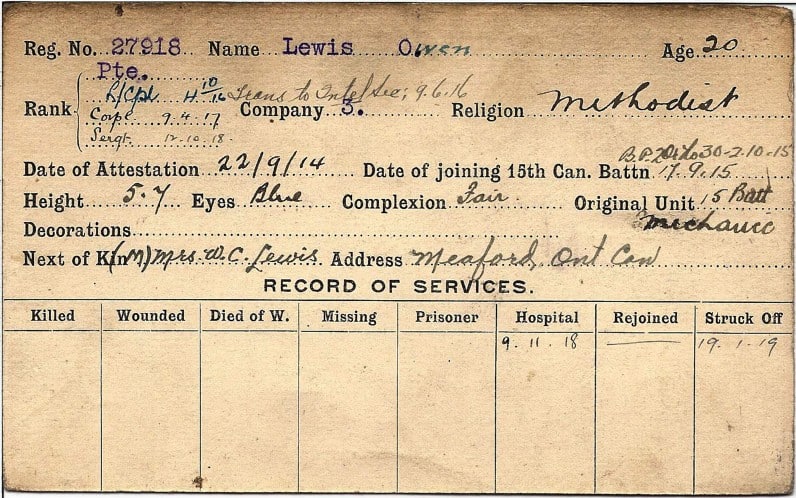 Reg. No. 27918 Name Lewis Owen Age 20
Pte.
L/Cpl 4 10/16 Trans to Intel Sec; 9.6.16
Rank Corpl 9.4.17 Company 3. Religion Methodist
Sergt. 12.10.18
B.P. 30-2.10-15
Date of Attestation 22/9/14 Date of joining 15th Can. Battn 17.9.15
Height 5.7 Eyes Blue Complexion Fair. Original Unit 15 Batt
Decorations mechanic
Next of Kin (M) Mrs. W. C. Lewis. Address Meaford, Ont Can
RECORD OF SERVICES.
Killed Wounded Died of W. Missing Prisoner Hospital Rejoined Struck Off
9. 11. 18 19. 1. 19